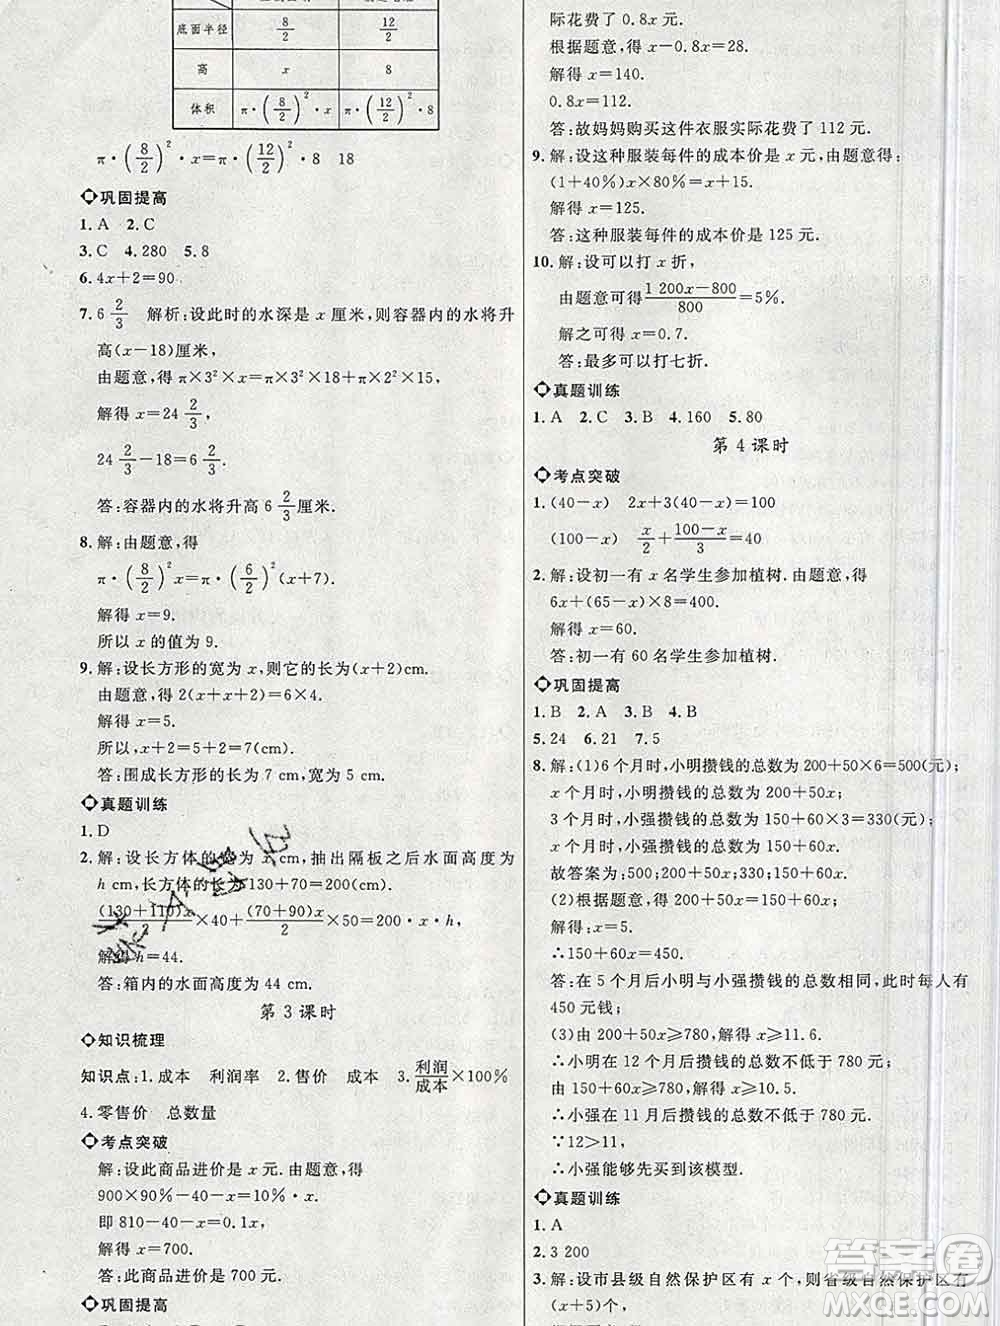 底面半径 8/2 12/2
高 x 8
体积 π·(8/2)²·x π·(12/2)²·8
π·(8/2)²·x=π·(12/2)²·8 18
巩固提高
1.A 2.C
3.C 4.280 5.8
6.4x+2=90
7.6 2/3 解析:设此时的水深是 x 厘米,则容器内的水将升
高(x-18)厘米,
由题意,得 π×3²×x=π×3²×18+π×2²×15,
解得 x=24 2/3,
24 2/3-18=6 2/3.
答:容器内的水将升高 6 2/3厘米.
8.解:由题意,得
π·(8/2)²x=π·(6/2)²(x+7).
解得 x=9.
所以 x 的值为 9.
9.解:设长方形的宽为 x,则它的长为(x+2)cm.
由题意,得 2(x+x+2)=6×4.
解得 x=5.
所以,x+2=5+2=7(cm).
答:围成长方形的长为 7 cm,宽为 5 cm.
真题训练
1.D
2.解:设长方体的宽为 x cm,抽出隔板之后水面高度为
h cm,长方体的长为130+70=200(cm).
(130+110)x/2×40+(70+90)x/2×50=200·x·h,
解得 h=44.
答:箱内的水面高度为 44 cm.
第 3 课时
知识梳理
知识点:1.成本 利润率 2.售价 成本 3.利润/成本×100%
4.零售价 总数量
考点突破
解:设此商品进价是 x 元.由题意,得
900×90%-40-x=10%·x.
即 810-40-x=0.1x,
解得 x=700.
答:此商品进价是 700 元.
巩固提高
际花费了 0.8x 元.
根据题意,得 x-0.8x=28.
解得 x=140.
0.8x=112.
答:故妈妈购买这件衣服实际花费了 112 元.
9.解:设这种服装每件的成本价是 x 元,由题意得:
(1+40%)x×80%=x+15.
解得 x=125.
答:这种服装每件的成本价是 125 元.
10.解:设可以打 x 折,
由题意可得(1 200x-800)/800=5%.
解之可得 x=0.7.
答:最多可以打七折.
真题训练
1.A 2.C 3.B 4.160 5.80
第 4 课时
考点突破
1.(40-x) 2x+3(40-x)=100
(100-x) x/2+(100-x)/3=40
2.解:设初一有 x 名学生参加植树.由题意,得
6x+(65-x)×8=400.
解得 x=60.
答:初一有 60 名学生参加植树.
巩固提高
1.B 2.A 3.B 4.B
5.24 6.21 7.5
8.解:(1)6 个月时,小明攒钱的总数为 200+50×6=500(元);
x 个月时,小明攒钱的总数为 200+50x;
3 个月时,小强攒钱的总数为 150+60×3=330(元);
x 个月时,小强攒钱的总数为 150+60x.
故答案为:500;200+50x;330;150+60x.
(2)根据题意,得 200+50x=150+60x,
解得:x=5.
∴150+60x=450.
答:在 5 个月后小明与小强攒钱的总数相同,此时每人有
450 元钱;
(3)由 200+50x≥780,解得 x≥11.6.
∴小明在 12 个月后攒钱的总数不低于 780 元.
由 150+60x≥780,解得 x≥10.5.
∴小强在 11 月后攒钱的总数不低于 780 元.
∵12>11,
∴小强能够先买到该模型.
真题训练
1.A
2.3 200
3.解:设市县级自然保护区有 x 个,则省级自然保护区有
(x+5)个,
答案圈
MXQE.COM